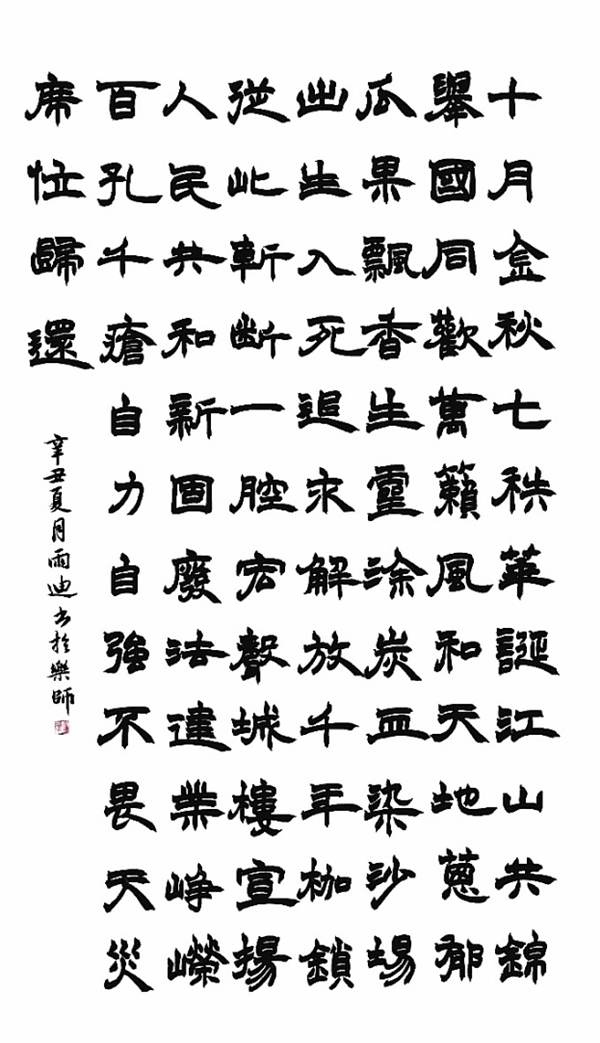 十月金秋七秩華誕江山共錦
舉國同歡萬籟風和天地蔥郁
瓜果飄香生靈涂炭血染沙場
出生入死追求解放千年枷鎖
從此斬斷一腔宏聲城樓宣揚
人民共和新固廢法建業崢嶸
百孔千瘡自力自強不畏天災
席歸還
辛丑夏月雨迪书於樂師